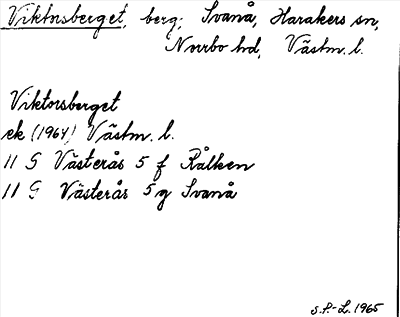 Viktorsberget, berg; Svanå, Harakers sn,
Norrbo hd, Västm. l.
Viktorsberget
ek (1964) Västm. l.
11 G Västerås 5 f Rålken
11 G Västerås 5 g Svanå
S.P-L. 1965